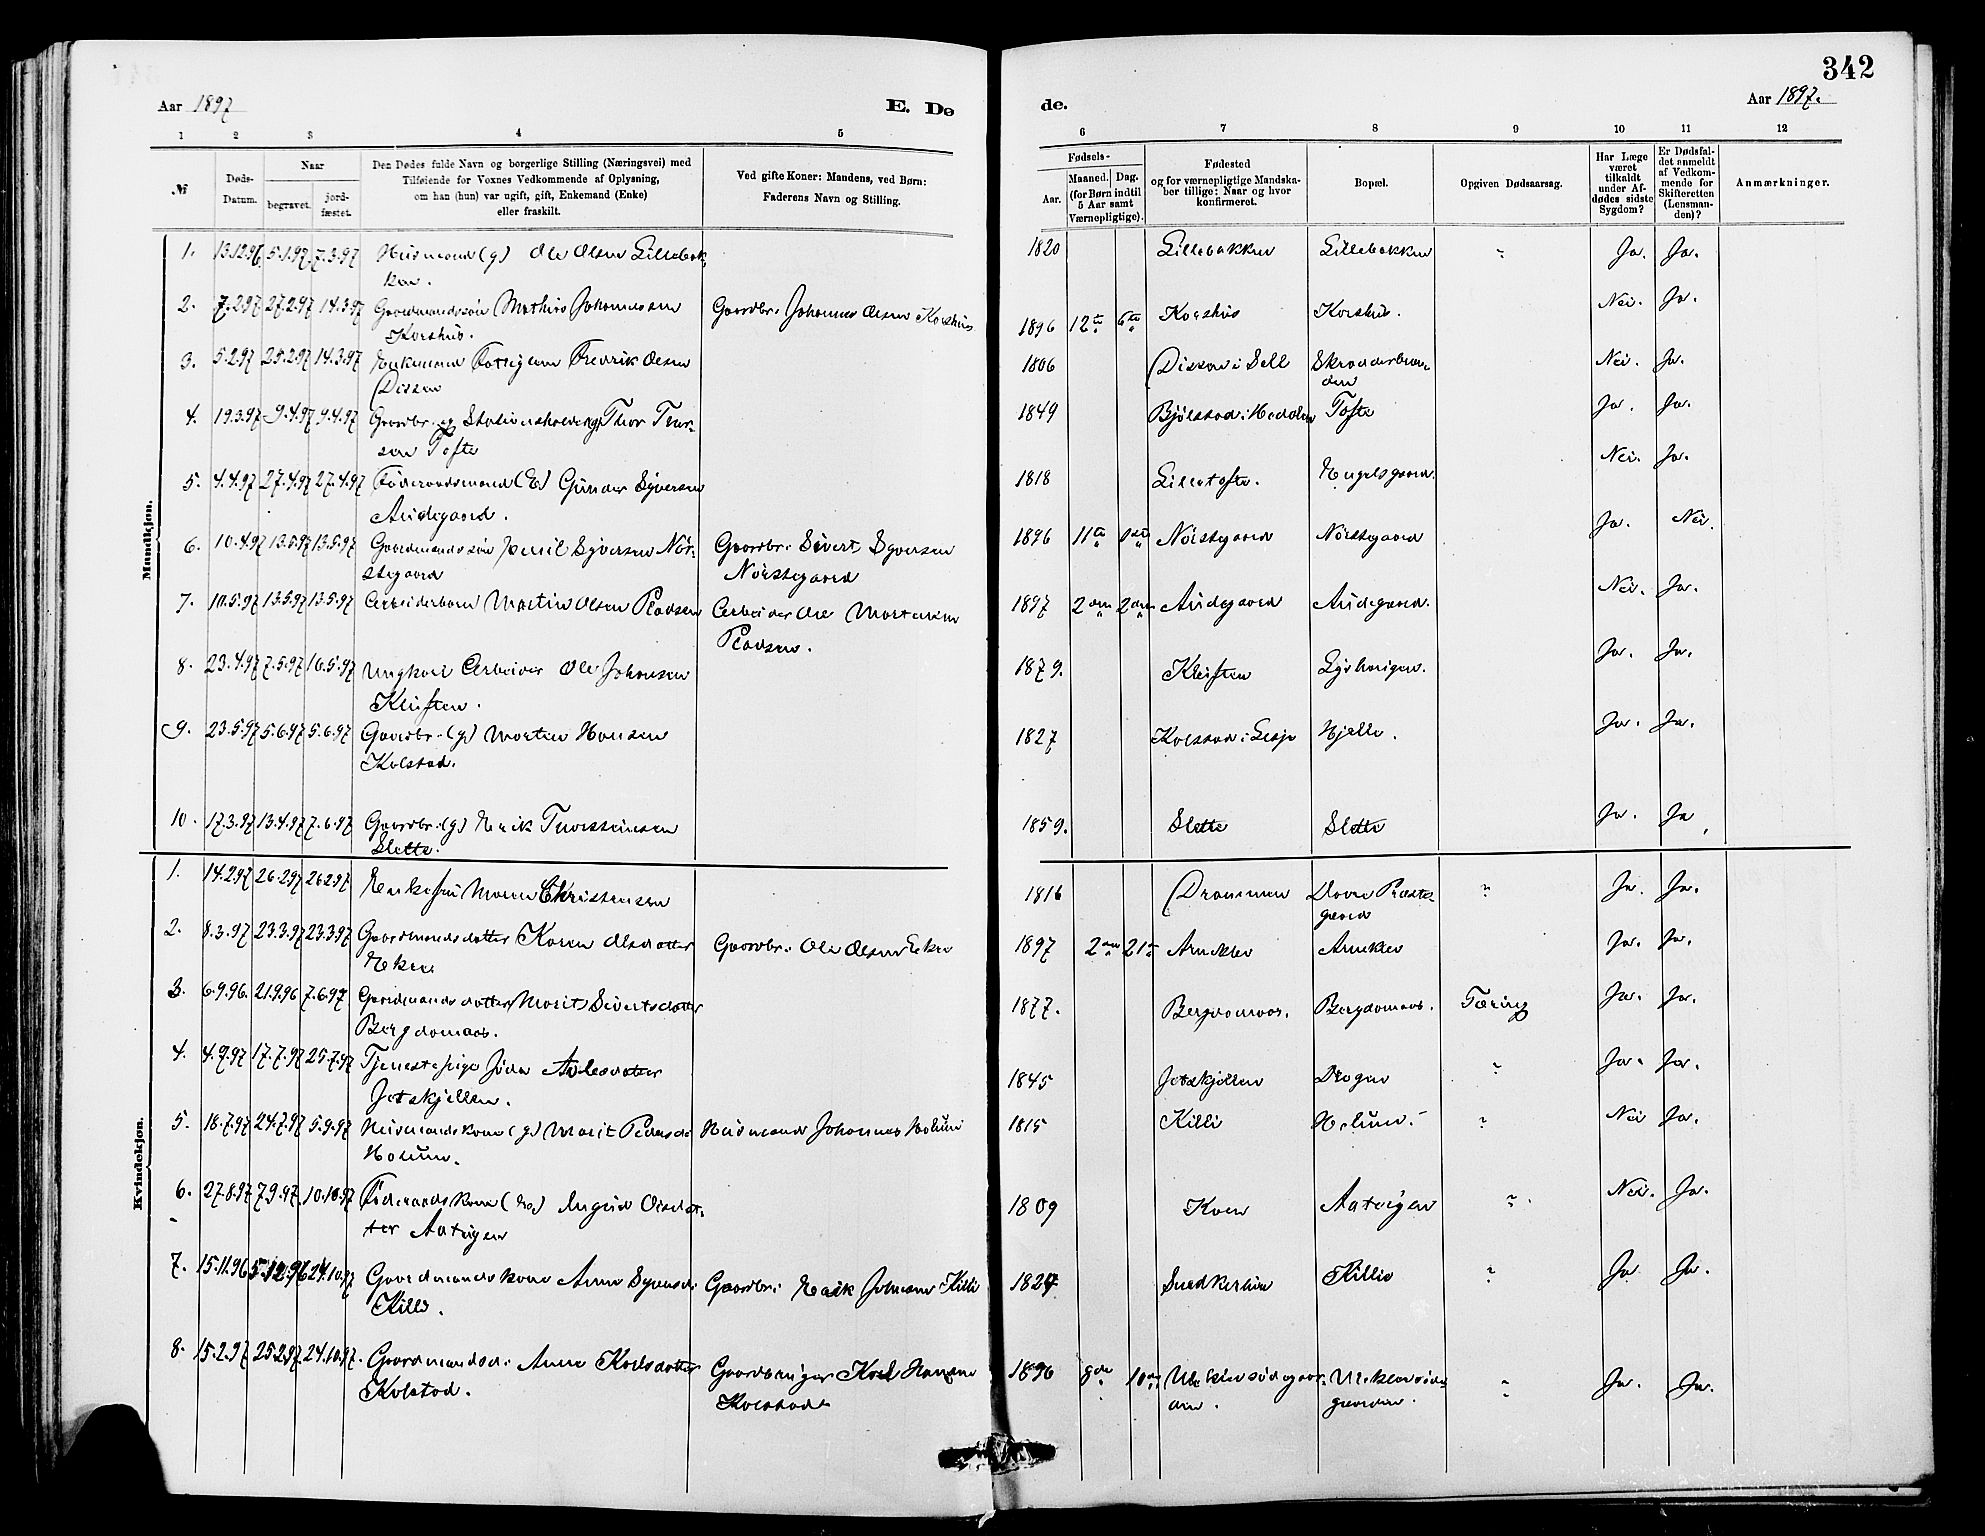 342
Aar 1897
E. Dø
de.
Aar 1897.
1 2 3 4 5
6 7 8 9 10 11 12
№
Døds-
Datum.
Naar
begravet.
jord-
fæstet.
Den Dødes fulde Navn og borgerlige Stilling (Næringsvei) med
Tilføiende for Voxnes Vedkommende af Oplysning,
om han (hun) var ugift, gift, Enkemand (Enke)
eller fraskilt.
Ved gifte Koner: Mandens, ved Børn:
Faderens Navn og Stilling.
Fødsels-
Aar.
Maaned. Dag.
(for Børn indtil
5 Aar samt
Værnepligtige).
Fødested
og for værnepligtige Mandska-
ber tillige: Naar og hvor
konfirmeret.
Bopæl.
Opgiven Dødsaarsag.
Har Læge
været
tilkaldt
under Af-
dødes sidste
Sygdom?
Er Dødsfal-
det anmeldt
af Vedkom-
mende for
Skifteretten
(Lensman-
den)?
Anmærkninger.
Mandkjøn.
1. 13.12.96. 5.1.97. 7.3.97 Husmand (g) Ole Olsen Lillebak- 1820 Lillebakken Lillebakken " Ja. Ja.
ken.
2. 7.2.97 27.2.97 14.3.97 Gaardmandssøn Mathias Johannessen Gaardbr. Johannes Olsen Korshus 1896 12te 6te Korshus Korshus. Nei. Ja.
Korshus.
3. 5.2.97 25.2.97 14.3.97 Enkemand Fattiglem Fredrik Olsen 1806 Dissen i Sell Skrædderbraa- Nei. Ja.
Dissen
den
4. 19.3.97 9.4.97 9.4.97 Gaardbr. og Stationsholder (g) Thor Thor- 1849 Bjølstad i Hedalen Tofte Ja. Ja.
sen Tofte
5. 4.4.97 27.4.97 27.4.97 Føderaadsmand (E) Gunder Syversen 1818 Lilletofte. Engelsgaard. Nei. Ja.
Audegaard.
6. 10.4.97 13.5.97 13.5.97 Gaardmandssøn Syversen Nør- Gaardbr. Sivert Syversen 1896 11te Nørstegaard Nørstegaard Ja. Nei.
stegaard
Nørstegaard
7. 10.5.97 13.5.97 13.5.97 Arbeiderbarn Martin Olsen Pladsen Arbeider Ole Mortensen 1897 2den 2den Audegaard Audegaard. Nei. Ja.
Pladsen.
8. 23.4.97 7.5.97 16.5.97 Ungkarl Arbeider Ole Johansen 1879. Kluften Lyshaugen. Ja. Ja.
Kluften.
9. 23.5.97 5.6.97 5.6.97 Gaardbr. (g) Morten Hansen 1827 Kolstad i Lesje Hjelle. Ja. Ja.
Kolstad.
10. 17.3.97 13.4.97 7.6.97 Gaardbr. (g) Erik Thorsteinsen 1859. Slette Slette Ja. Ja
Slette.
Kvindekjøn.
1. 14.2.97 26.2.97 26.2.97 Enkefru Maren Christensen 1816 Drammen Dovre Præste- " Ja. Ja.
gaard
2. 8.3.97 23.3.97 23.3.97 Gaardmandsdatter Karen Olsdatter Gaardbr. Ole Olsen Ekre 1897 2den 21te Arneklev Arneklev Ja. Ja.
Ekre
3. 6.9.96. 21.9.96 7.6.97 Gaardmandsdatter Marit Sivertsdatter 1877. Bergdomaas. Bergdomaas. Tæring Ja. Ja.
Bergdomaas.
4. 4.9.97 17.7.97 25.7.97 Tjenestepige 1845 Jotskjellen " Ja. Ja.
Jotskjellen.
5. 18.7.97 24.7.97 5.9.97 Husmandskone (g) Marit Pedersd. Husmand Johannes Holum 1815 Killi Holum. " Nei Ja.
Holum.
6. 27.8.97 7.9.97. 10.10.97 Føderaadskone Ingrid Olsdat- 1809 Koen Aatvigen " Nei. Ja.
ter Aatvigen
7. 15.11.96 5.12.96 24.10.97 Gaardmandskone Anne Syversd. Gaardbr. Erik Johnsen Killi 1824 Snedkerhus Killi " Ja Ja.
Killi.
8. 15.2.97 25.2.97 24.10.97. Gaardmandsd. Anne Karlsdatter Gaardbruger Karl Hansen 1896 8de 10de " Ja. Ja.
Kolstad.
Kolstad